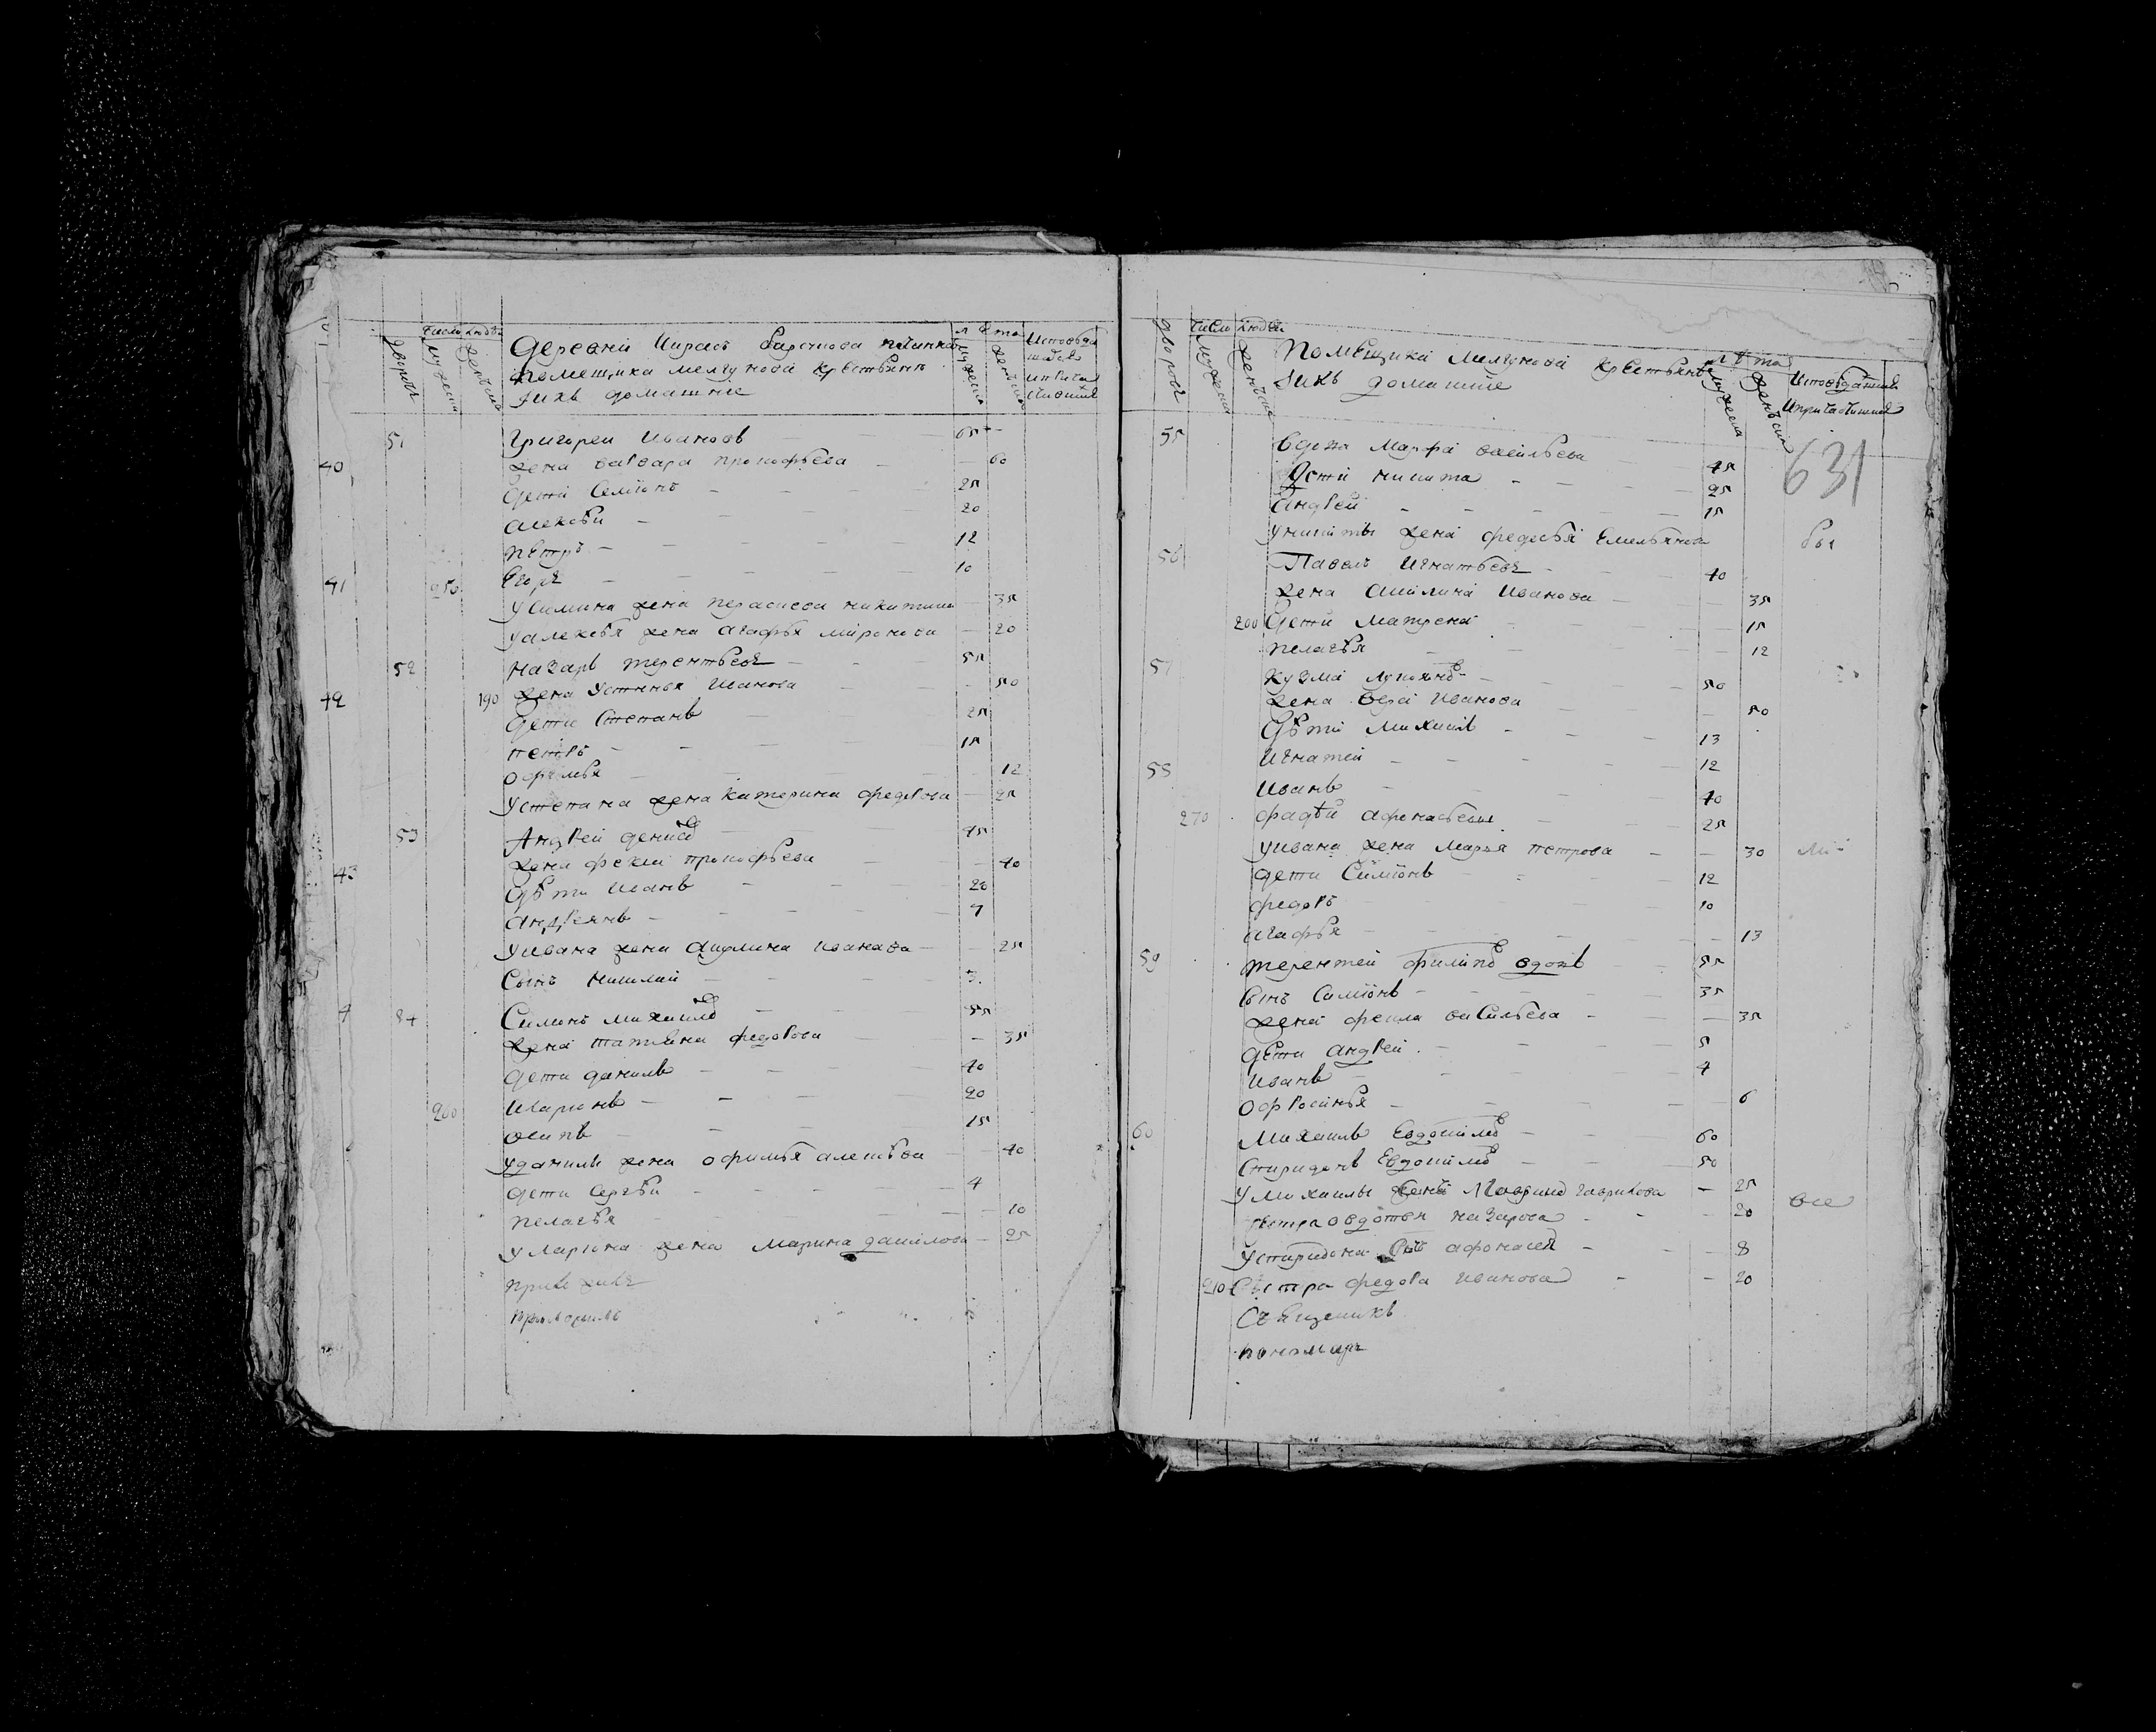 число людей
дворовъ
мужеска
женска
деревни
помещика мелгунова крестьяне
ихъ домашние
лета
мужеска
женска
исповеда
51 Григореи Ивановъ 65
40 жена варвара прокофьева 60
дети Семионъ 25
алексѣи 20
петръ 12
250 Егоръ 10
41
жена никитина 35
уалексѣя жена агафья миронова 20
52 назаръ терентьевъ 55
42 190 жена устинья иванова 50
дети Степанъ 25
петръ 15
офимья 12
устепана жена катерина федорова 25
53 Андреи денисовъ 45
43 жена фекла прокофьева 40
дѣти иванъ 20
андреянъ 7
уивана жена акулина иванова 25
Сынъ николаи 3
54 Симонъ михаиловъ 55
жена татьяна федорова 35
дети данила 40
260 иларионъ 20
осипъ 15
уданилы жена офимья алексѣва 40
дети сергѣи 4
пелагѣя 10
уларіона жена марина данилова 25
число людеи
дворовъ
мужеска
женска
Помѣщика мелгунова крестьяне
ихъ домашние
лѣта
мужеска
женска
исповѣдавшися
ипричастившися
631
55 вдова марфа васильева 45
дети никита 25
андреи 15
уникиты жена федосья Емельянова
56 Павелъ игнатьевъ 40
жена акилина иванова 35
200 дети матрена 15
пелагѣя 12
57 кузма 50
жена вера иванова 50
дѣти михаилъ 13
игнатеи 12
58 иванъ 40
270 фадѣи афонасьевъ 25
уивана жена марья петрова 30
дети Симионъ 12
федоръ 10
агафья 13
59 терентеи филиповъ вдовъ 55
сынъ Симионъ 35
жена фекла васильева 35
дети андреи 5
иванъ 4
офросинья 6
60 михаилъ Евдокимовъ 60
Спиридонъ Евдокимовъ 50
умихаилы жена гаврилова 25
сестра овдотья назарова 20
успиридона афонасеи 8
все
210 Сестра федора иванова 20
Священникъ
пономарь